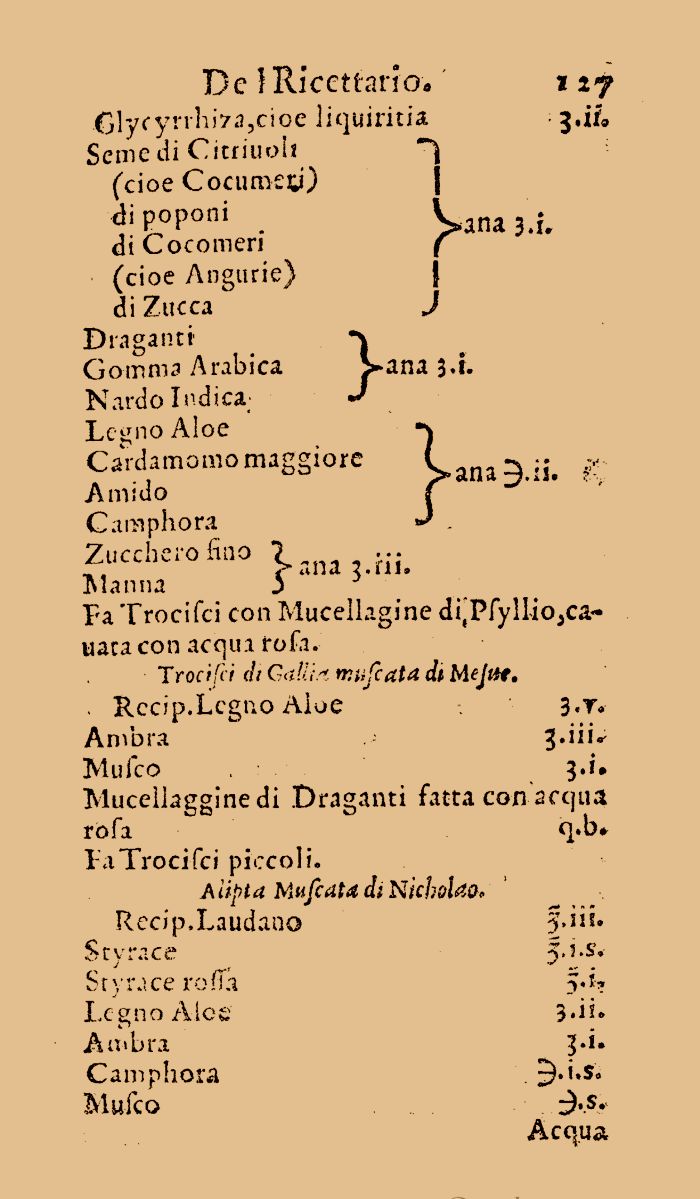 De l Ricettario. 127
Glycyrrhiza,cioe liquiritia ʒ.ii.
Seme di Citriuoli
(cioe Cocumeri)
di poponi
di Cocomeri
(cioe Angurie)
di Zucca
ana ʒ.i.
Draganti
Gomma Arabica
Nardo Indica
ana ʒ.i.
Legno Aloe
Cardamomo maggiore
Amido
Camphora
ana ℈.ii.
Zucchero fino
Manna
ana ʒ.iii.
Fa Trociſci con Mucellagine di Pſyllio,ca-
uata con acqua roſa.
Trociſci di Gallia muſcata di Meſue.
Recip.Legno Aloe ʒ.v.
Ambra ʒ.iii.
Muſco ʒ.i.
Mucellaggine di Draganti fatta con acqua
roſa q.b.
Fa Trociſci piccoli.
Alipta Muſcata di Nicholao.
Recip.Laudano ℥.iii.
Styrace ℥.i.s.
Styrace roſſa ℥.i.
Legno Aloe ʒ.ii.
Ambra ʒ.i.
Camphora ℈.i.s.
Muſco ℈.s.
Acqua